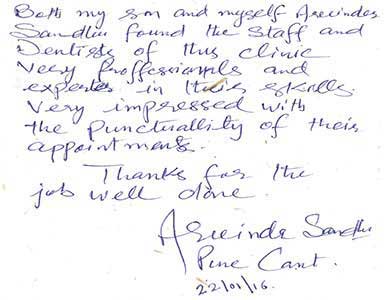 Both my son and myself Arvinder
Sandhu found the Staff and
Dentists of this clinic
Very Proffessionals and
expertes in their skills.
Very impressed with
the Punctuallity of their
appointments.
Thanks for the
job well done.
Arvinder Sandhu
Pune Cant.
22/01/16.